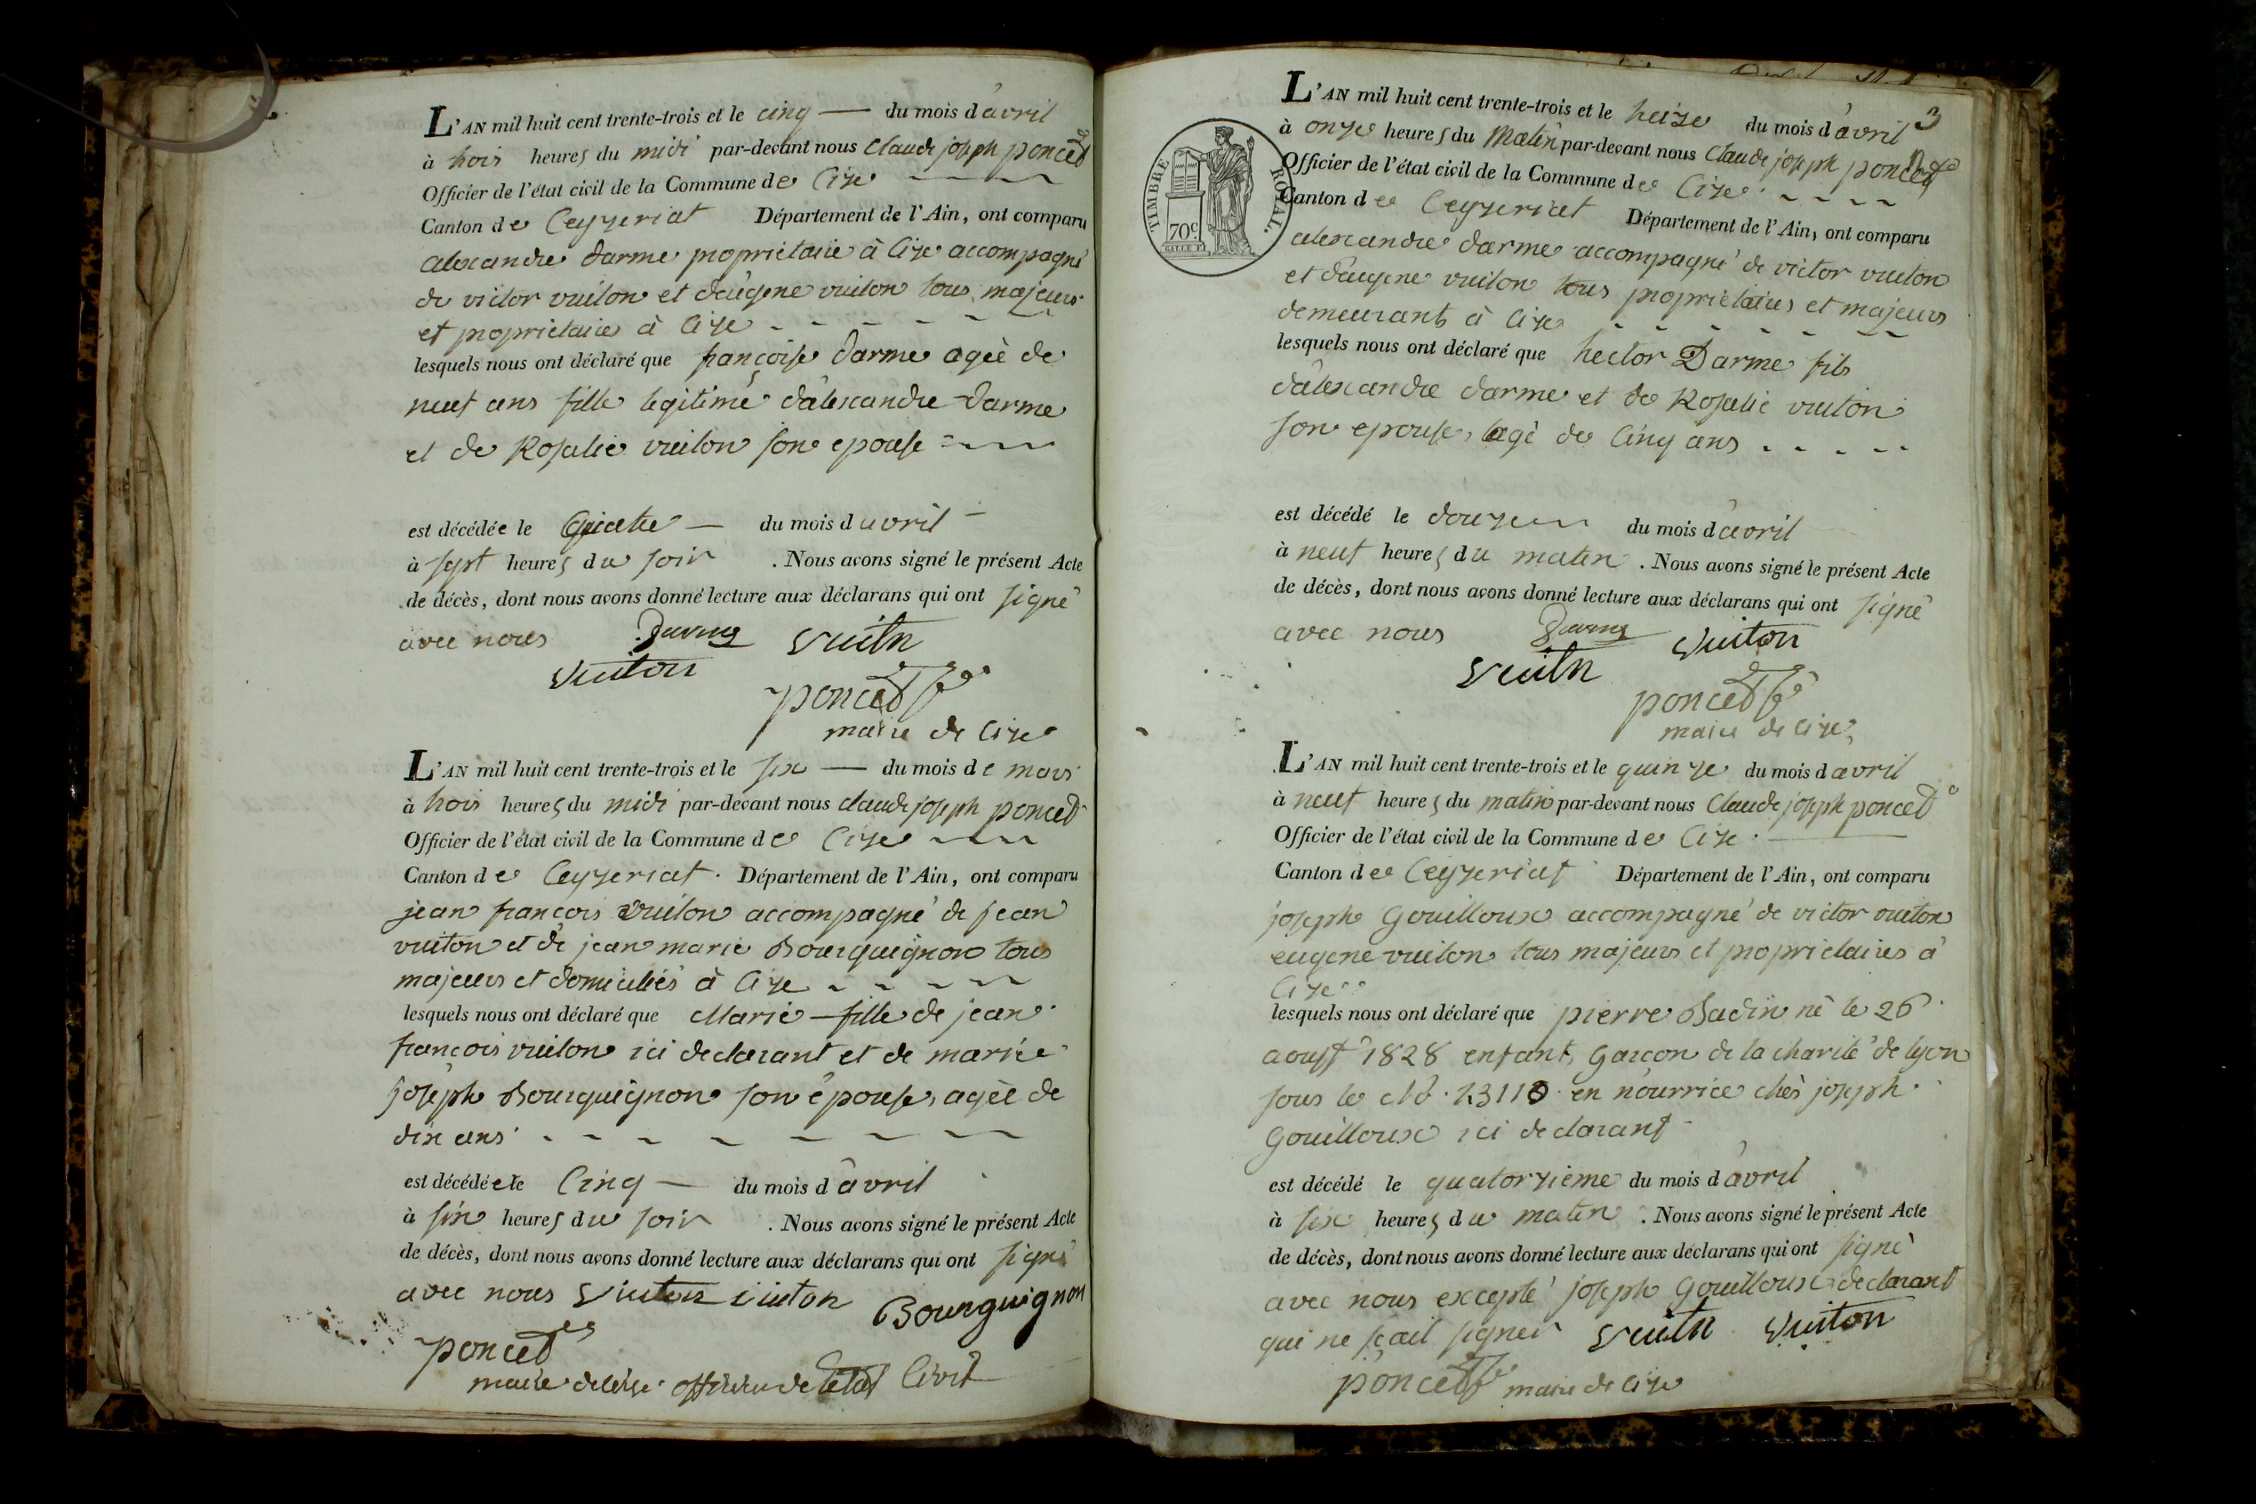 L'AN mil huit cent trente-trois et le cinq — du mois d'avril
à trois heures du midi par-devant nous Claude joseph poncet
Officier de l'état civil de la Commune de Cize
Canton de Ceyzeriat Département de l'Ain, ont comparu
alexandre darme proprietaire à Cize accompagné
de victor vuiton et d'eugene vuiton tous majeurs
et proprietaire à Cize
lesquels nous ont déclaré que françoise darme agée de
neuf ans fille legitime d'alexandre darme
et de Rosalie vuiton son epouse
est décédée le quatre — du mois d'avril
à sept heures du soir . Nous avons signé le présent Acte
de décès, dont nous avons donné lecture aux déclarans qui ont signé
avec nous Darme vuiton
vuiton
poncet
maire de Cize
L'AN mil huit cent trente-trois et le six — du mois de mars
à trois heures du midi par-devant nous claude joseph poncet
Officier de l'état civil de la Commune de Cize
Canton de Ceyzeriat . Département de l'Ain, ont comparu
jean francois vuiton accompagné de jean
vuiton et de jean marie Bourguignon tous
majeurs et domiciliés à Cize
lesquels nous ont déclaré que Marie — fille de jean
francois vuiton ici declarant et de marie
joseph Bourguignon son épouse, agée de
dix ans
est décédée le Cinq — du mois d'avril
à six heures du soir . Nous avons signé le présent Acte
de décès, dont nous avons donné lecture aux déclarans qui ont signé
avec nous vuiton vuiton Bourguignon
poncet
maire de Cize officier de l'état Civil
3
L'AN mil huit cent trente-trois et le treize du mois d'avril
à onze heures du Matin par-devant nous Claude joseph poncet
Officier de l'état civil de la Commune de Cize
Canton de Ceyzeriat Département de l'Ain, ont comparu
TIMBRE ROYAL.
70c.
alexandre darme accompagné de victor vuiton
et d'eugene vuiton tous proprietaires et majeurs
demeurants à Cize
lesquels nous ont déclaré que hector Darme fils
d'alexandre darme et de Rosalie vuiton
son epouse, agé de Cinq ans
est décédé le douze du mois d'avril
à neuf heures du matin . Nous avons signé le présent Acte
de décès, dont nous avons donné lecture aux déclarans qui ont signé
avec nous Darme vuiton
vuiton
poncet
maire de Cize
L'AN mil huit cent trente-trois et le quinze du mois d'avril
à neuf heures du matin par-devant nous Claude joseph poncet
Officier de l'état civil de la Commune de Cize
Canton de Ceyzeriat Département de l'Ain, ont comparu
joseph Gouilloux accompagné de victor vuiton
eugene vuiton tous majeurs et proprietaires à
Cize
lesquels nous ont déclaré que pierre Badin né le 26
aoust 1828 enfant, Garcon de la charité de lyon
sous le No. en nourrice chés joseph
Gouilloux ici declarant
est décédé le quatorzieme du mois d'avril
à six heures du matin . Nous avons signé le présent Acte
de décès, dont nous avons donné lecture aux déclarans qui ont signé
avec nous excepté joseph Gouilloux declarant
qui ne sçait signer vuiton vuiton
poncet maire de Cize